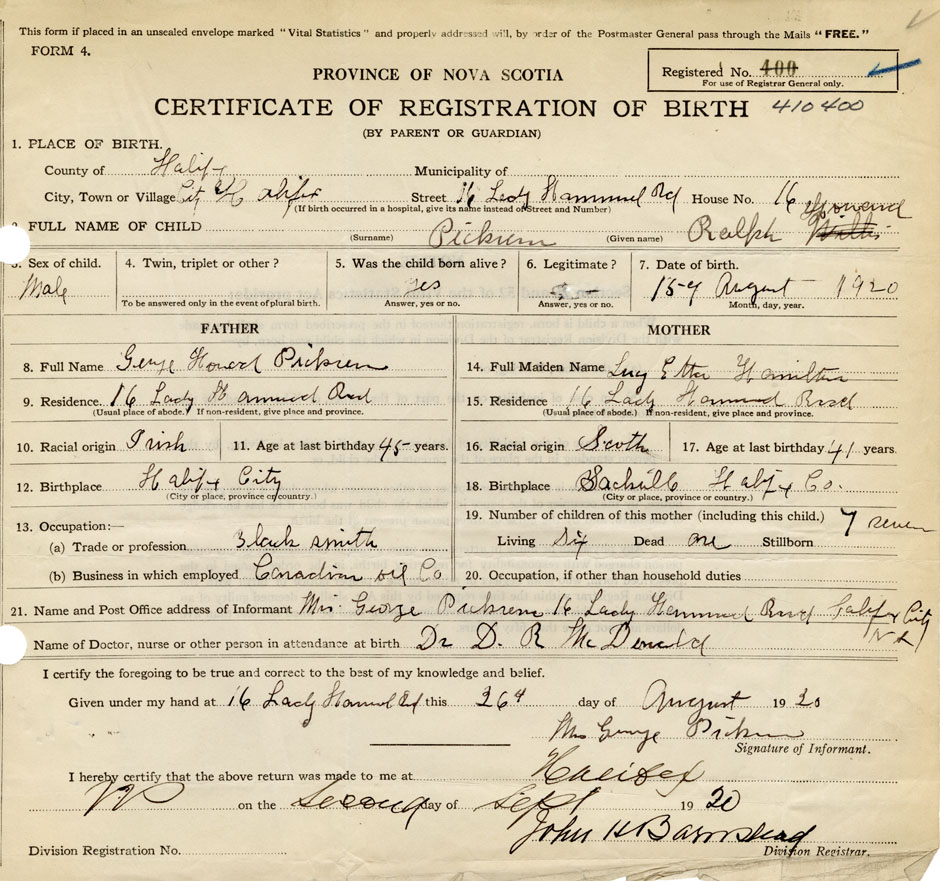 This form if placed in an unsealed envelope marked "Vital Statistics" and properly addressed will, by order of the Postmaster General pass through the Mails "FREE."
FORM 4.
Registered No. 400
For use of Registrar General only.
PROVINCE OF NOVA SCOTIA
CERTIFICATE OF REGISTRATION OF BIRTH 410400
(BY PARENT OR GUARDIAN)
1. PLACE OF BIRTH.
County of Halifx Municipality of
City, Town or Village City Halifx Street 16 Lady Hammond Rd House No. 16
(If birth occurred in a hospital, give its name instead of Street and Number)
2. FULL NAME OF CHILD (Surname) Pickrem (Given name) Ralph
3. Sex of child. 4. Twin, triplet or other? 5. Was the child born alive? 6. Legitimate? 7. Date of birth.
Male Yes 15 August 1920
To be answered only in the event of plural birth. Answer, yes or no. Answer, yes or no. Month, day, year.
FATHER MOTHER
8. Full Name George Howard Pickrem 14. Full Maiden Name Lucy Etta Hamilton
9. Residence. 16 Lady Hammond Road 15. Residence 16 Lady Hammond Road
(Usual place of abode.) If non-resident, give place and province. (Usual place of abode.) If non-resident, give place and province.
10. Racial origin Irish 11. Age at last birthday 45 years. 16. Racial origin Scoth 17. Age at last birthday 41 years.
12. Birthplace Halifx City 18. Birthplace Sackville Halifx Co.
(City or place, province or country.) (City or place, province or country.)
13. Occupation:— 19. Number of children of this mother (including this child.) 7 seven
(a) Trade or profession Black smith Living Six Dead one Stillborn
(b) Business in which employed Canadian oil Co 20. Occupation, if other than household duties
21. Name and Post Office address of Informant Mrs. George Pickrem 16 Lady Hammond Road Halifx City
Name of Doctor, nurse or other person in attendance at birth Dr D. R McDonald
I certify the foregoing to be true and correct to the best of my knowledge and belief.
Given under my hand at 16 Lady Hammond Rd this 26 day of August 1920
Mrs George Pickrem
Signature of Informant.
I hereby certify that the above return was made to me at Halifax
on the Second day of Sept 1920
John H Barnstead
Division Registration No. Division Registrar.